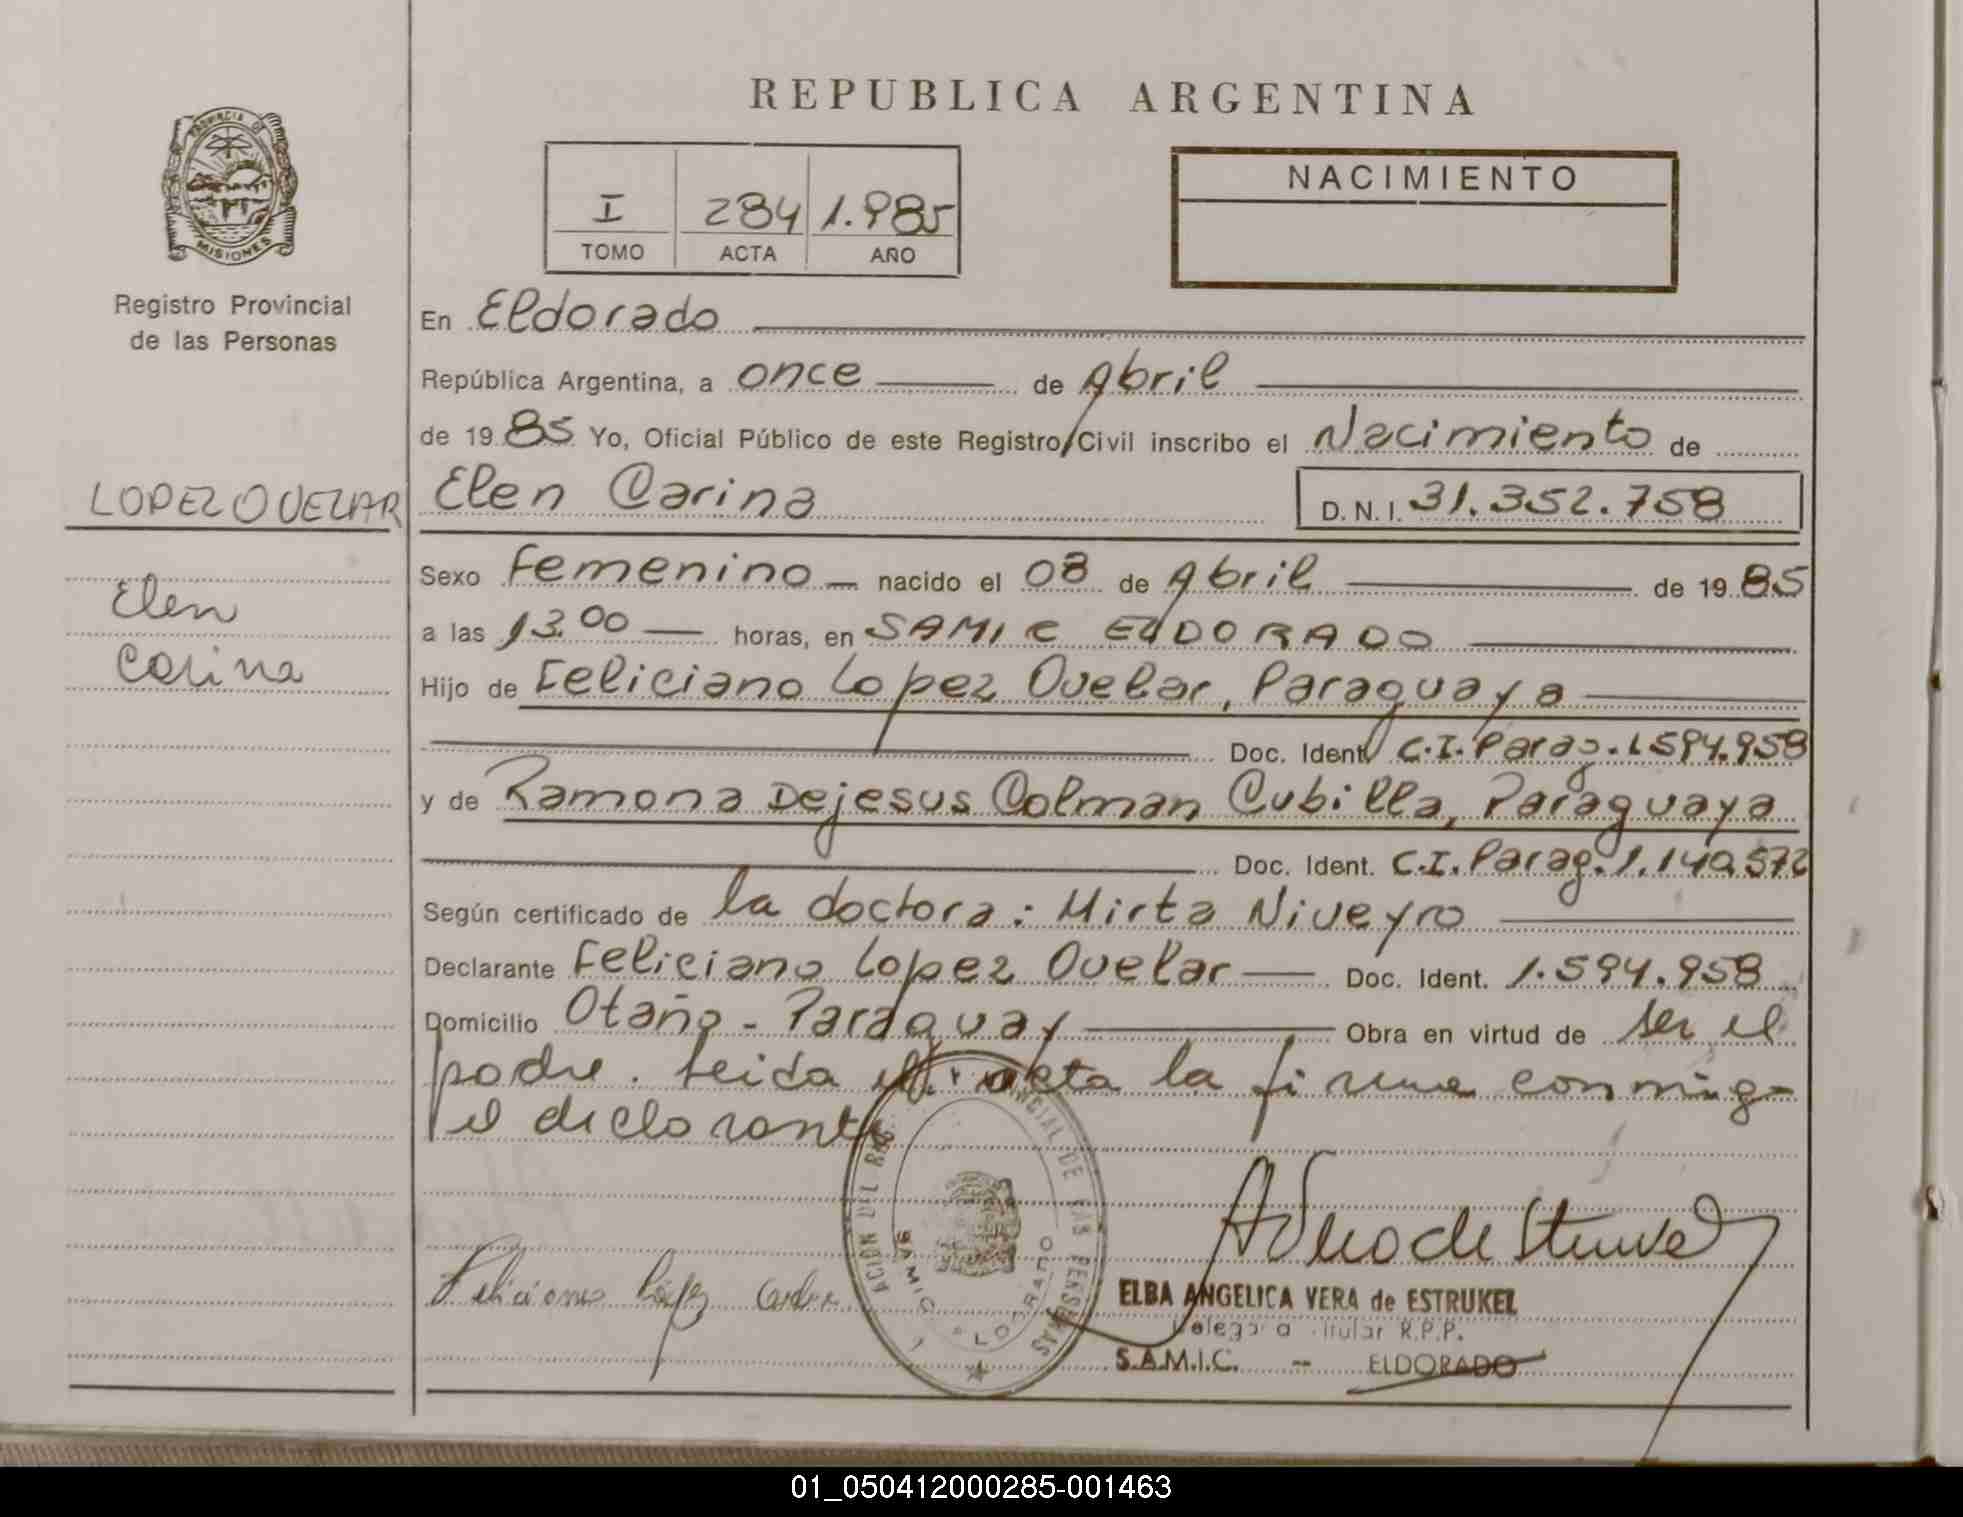 REPUBLICA ARGENTINA
PROVINCIA DE
MISIONES
Registro Provincial
de las Personas
I 284 1.985
TOMO ACTA AÑO
NACIMIENTO
En Eldorado
República Argentina, a once de Abril
de 1985 Yo, Oficial Público de este Registro Civil inscribo el Nacimiento de
LOPEZ OVELAR
Elen Carina
D.N.I. 31.352.758
Elen
Carina
Sexo Femenino nacido el 08 de Abril de 1985
a las 13.00 horas, en SAMIC ELDORADO
Hijo de Feliciano Lopez Ovelar, Paraguaya
Doc. Ident. C.I. Parag. 1.594.958
y de Ramona Dejesus Colman Cubilla, Paraguaya
Doc. Ident. C.I. Parag. 1.140.572
Según certificado de la doctora: Mirta Niveyro
Declarante Feliciano Lopez Ovelar Doc. Ident. 1.594.958
Domicilio Otaño - Paraguay Obra en virtud de ser el
padre. Leida el acta la firma conmigo
el declarante
Feliciano López
DE LAS PERSONAS
SAMIC ELDORADO
ELBA ANGELICA VERA de ESTRUKEL
Delegada Titular R.P.P.
S.A.M.I.C. - ELDORADO
01_050412000285-001463